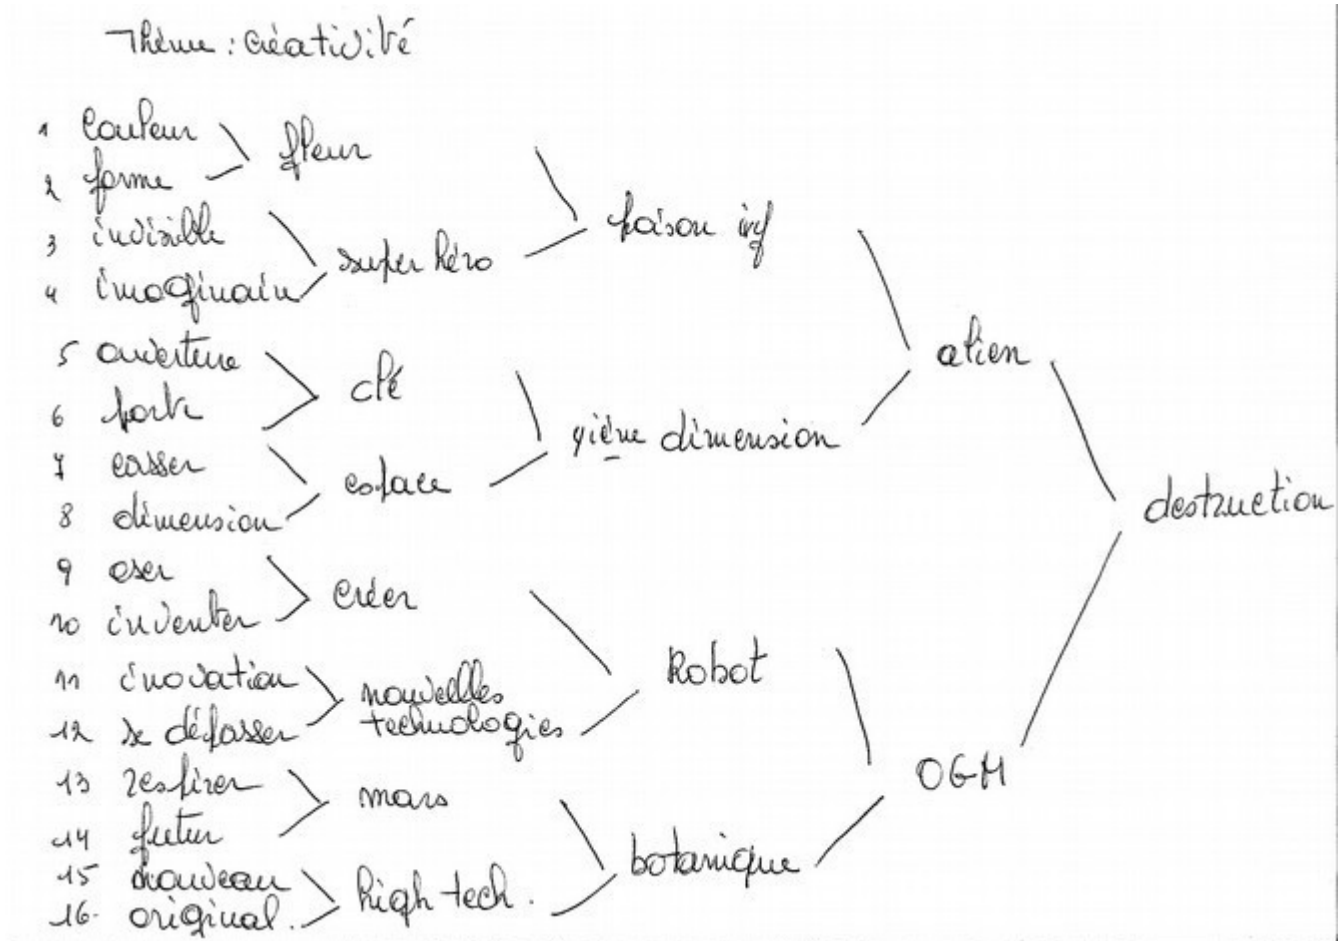 Thème : Créativité
1 couleur
2 forme
3 invisible
4 imaginain
5 ouverture
6 porte
7 casser
8 dimension
9 oser
10 inventer
11 inovation
12 se dépasser
13 respirer
14 futur
15 nouveau
16. original.
fleur
super héro
clé
espace
créer
nouvelles
technologies
mars
high tech.
poison ivy
4ième dimension
Robot
botanique
alien
OGM
destruction